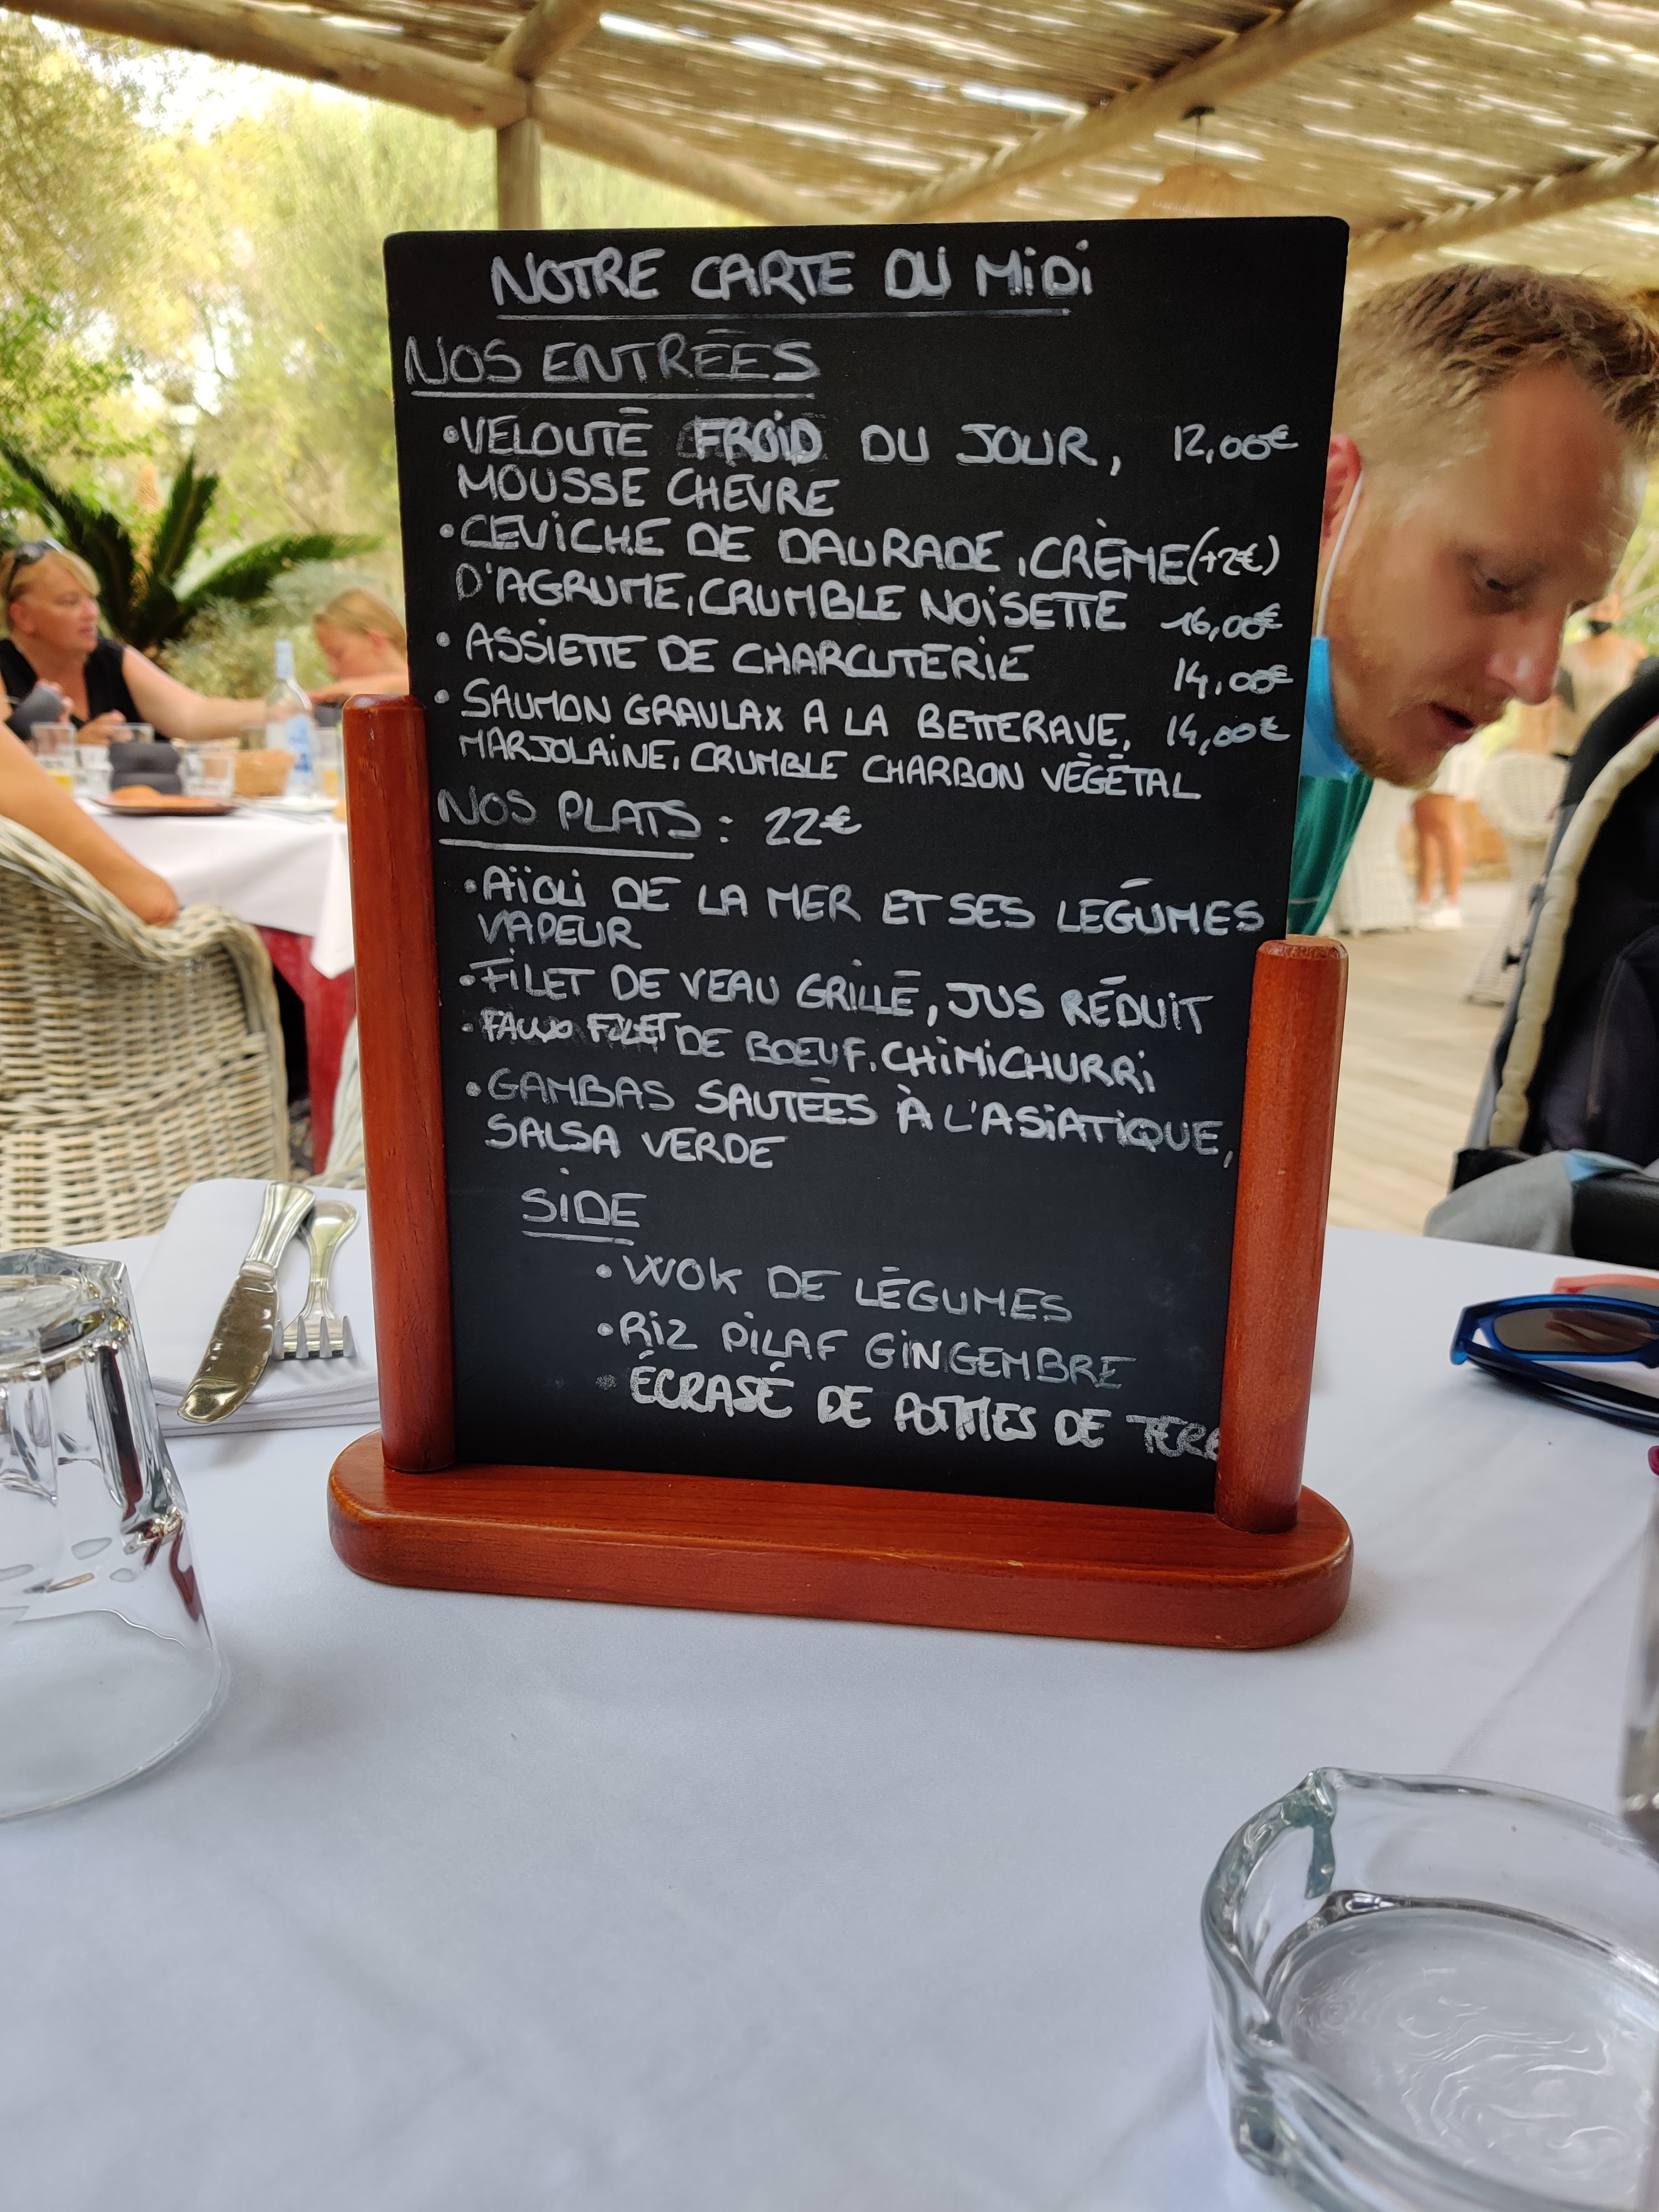 NOTRE CARTE DU MiDi
NOS ENTRÉES
•VELOUTÉ FROID DU JOUR, 12,00€
MOUSSE CHEVRE
•CEViCHE DE DAURADE, CRÈME (+2€)
D'AGRUME, CRUMBLE NOiSETTE 16,00€
• ASSiETTE DE CHARCUTERiE 14,00€
• SAUMON GRAVLAX A LA BETTERAVE, 14,00€
MARJOLAiNE, CRUMBLE CHARBON VÉGÉTAL
NOS PLATS : 22€
•AÏOLi DE LA MER ET SES LÉGUMES
VAPEUR
•FiLET DE VEAU GRiLLÉ, JUS RÉDUiT
•FAUX FILET DE BOEUF, CHiMiCHURRi
•GAMBAS SAUTÉES À L'ASiATiQUE,
SALSA VERDE
SiDE
•WOK DE LÉGUMES
•RiZ PiLAF GiNGEMBRE
• ÉCRASÉ DE POMMES DE TERRE